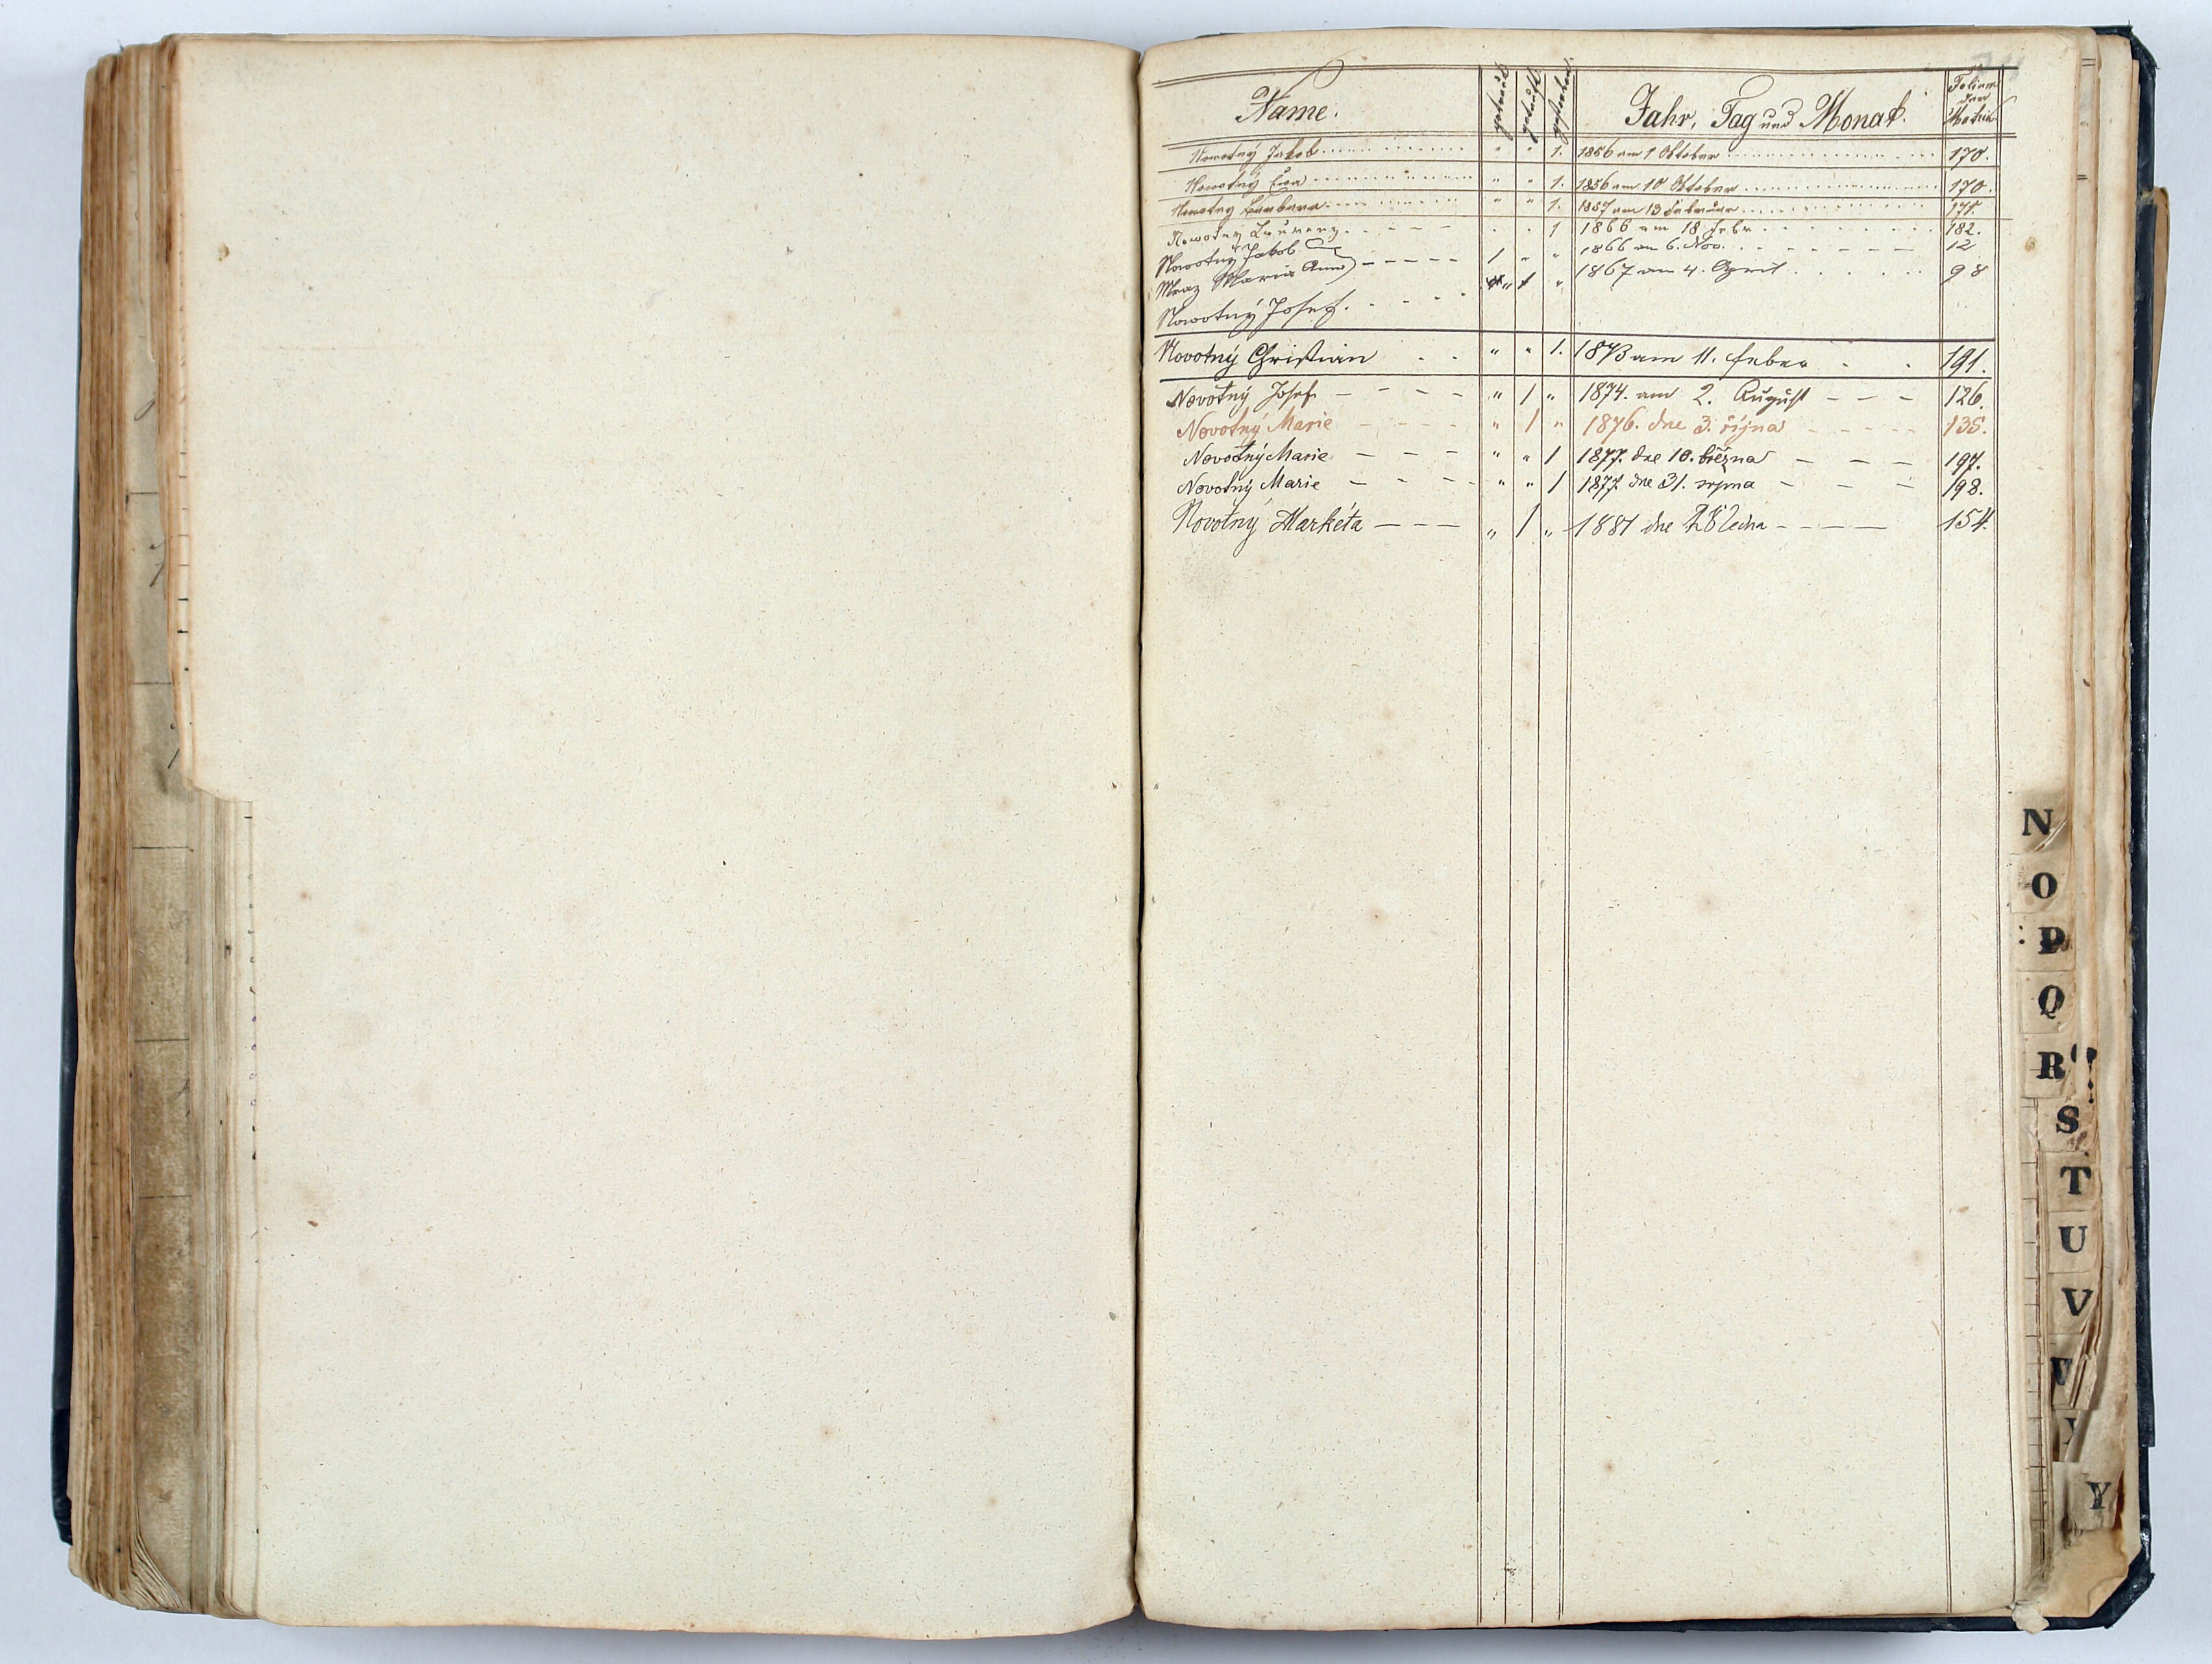 Name. getraut getauft gestorben Jahr, Tag und Monat. Folium der Matrik
Nowotný Jakob " " 1. 1856 am 1 Oktober 170.
Nowotný Eva " " 1. 1856 am 10 Oktober 170.
Nowotný Barbara " " 1. 1857 am 13 Februar 171.
Nowotny Laurenz 1 1866 am 18 Febr 182.
Nowotný Jakob 1 " " 1866 am 6. Nov. 12
Mraz Maria Anna
Nowotný Josef. " 1 " 1867 am 4. April 98
Novotný Christian " " 1. 1873 am 11. Feber 191.
Novotný Josef " 1 " 1874. am 2. August 126.
Novotný Marie " 1 " 1876. dne 3. října 135.
Novotný Marie " " 1 1877. dne 10. března 197.
Novotný Marie " " 1 1877. dne 31. srpna 198.
Novotný Markéta " 1 " 1881 dne ledna 154.
N
O
P
Q
R
S
T
U
V
Y